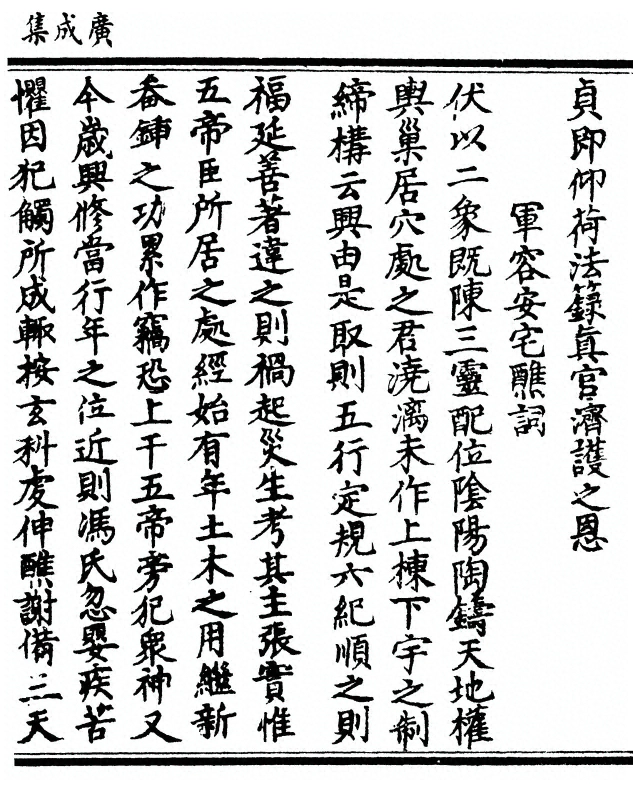 廣成集
貞即仰荷法籙真官濟護之恩
軍容安宅醮詞
伏以二象既陳三靈配位陰陽陶鑄天地權
輿巢居穴處之君澆漓未作上棟下宇之制
締構云興由是取則五行定規六紀順之則
福延善著違之則禍起災生考其主張實惟
五帝臣所居之處經始有年土木之用繼新
畚鍤之功累作竊恐上干五帝旁犯衆神又
今歲興修當行年之位近則馮氏忽嬰疾苦
懼因犯觸所成輙按玄科虔伸醮謝備三天